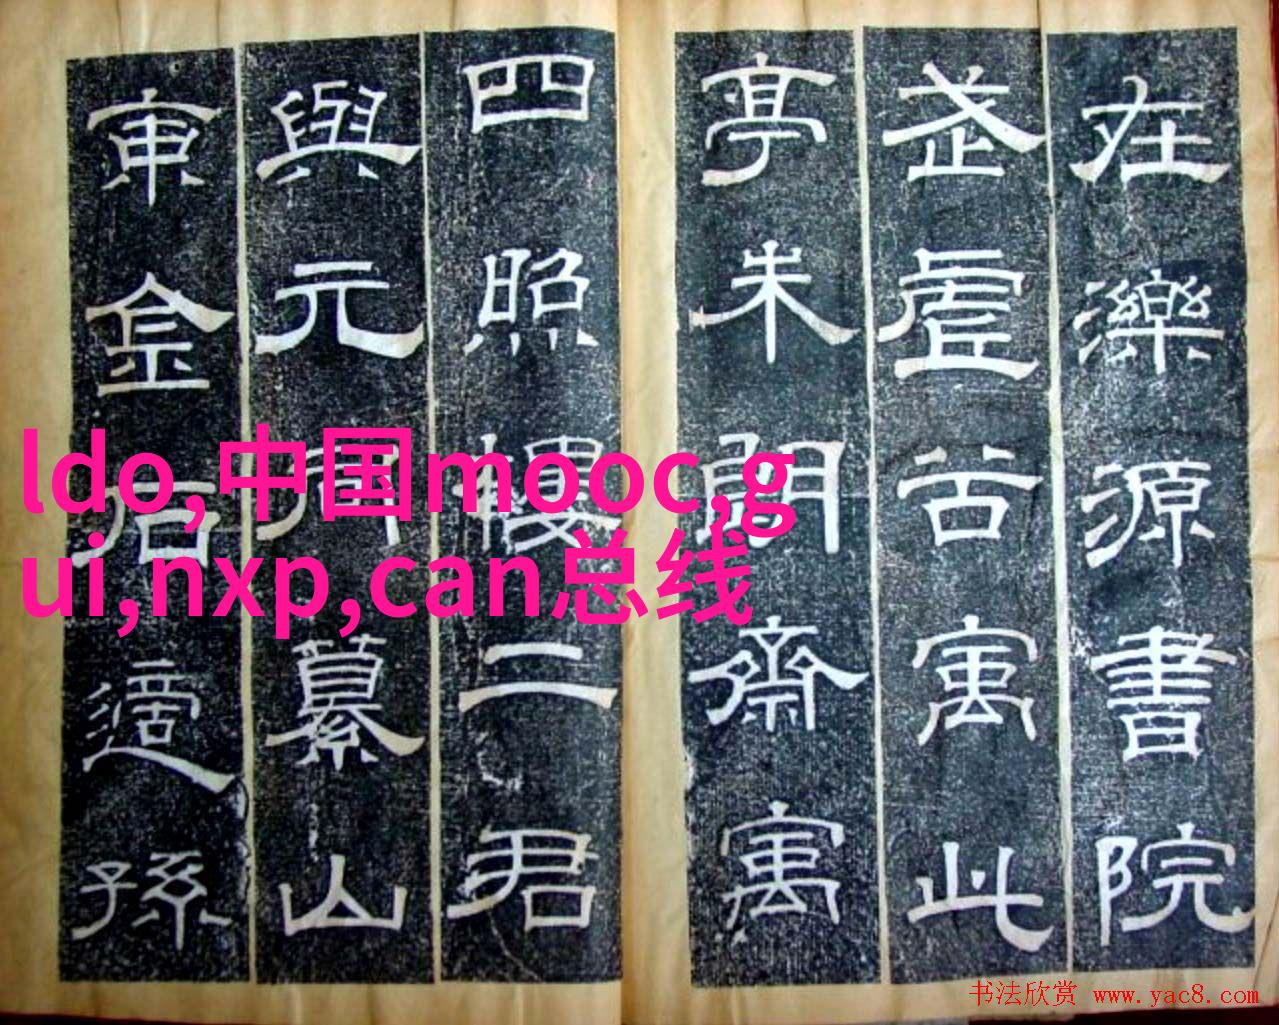 在濼源書院
武虛谷寓此
亭朱朗齋寓
四照樓二君
與元同纂山
東金石適孫
ldo,中国mooc,g
ui,nxp,can总线
书法欣赏 www.yac8.com